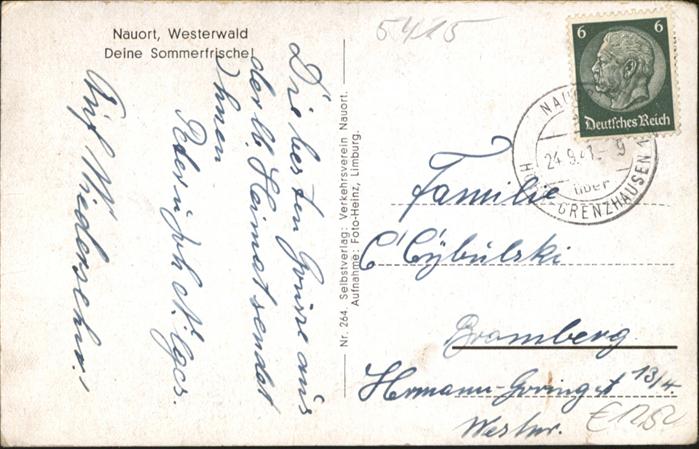 Nauort, Westerwald
Deine Sommerfrische!
Die besten Grüsse aus
der lb. Heimat sendet
Ihnen
Peter u. Joh.
Auf Wiedersehn!
Nr. 264. Selbstverlag: Verkehrsverein Nauort.
Aufnahme: Foto-Heinz, Limburg.
5415
6 6
Deutsches Reich
NAU
24.9.41. 9
über
H GRENZHAUSEN 1
Familie
C Cybülski
Bromberg.
Hermann-Goring St 13/4
Westpr.